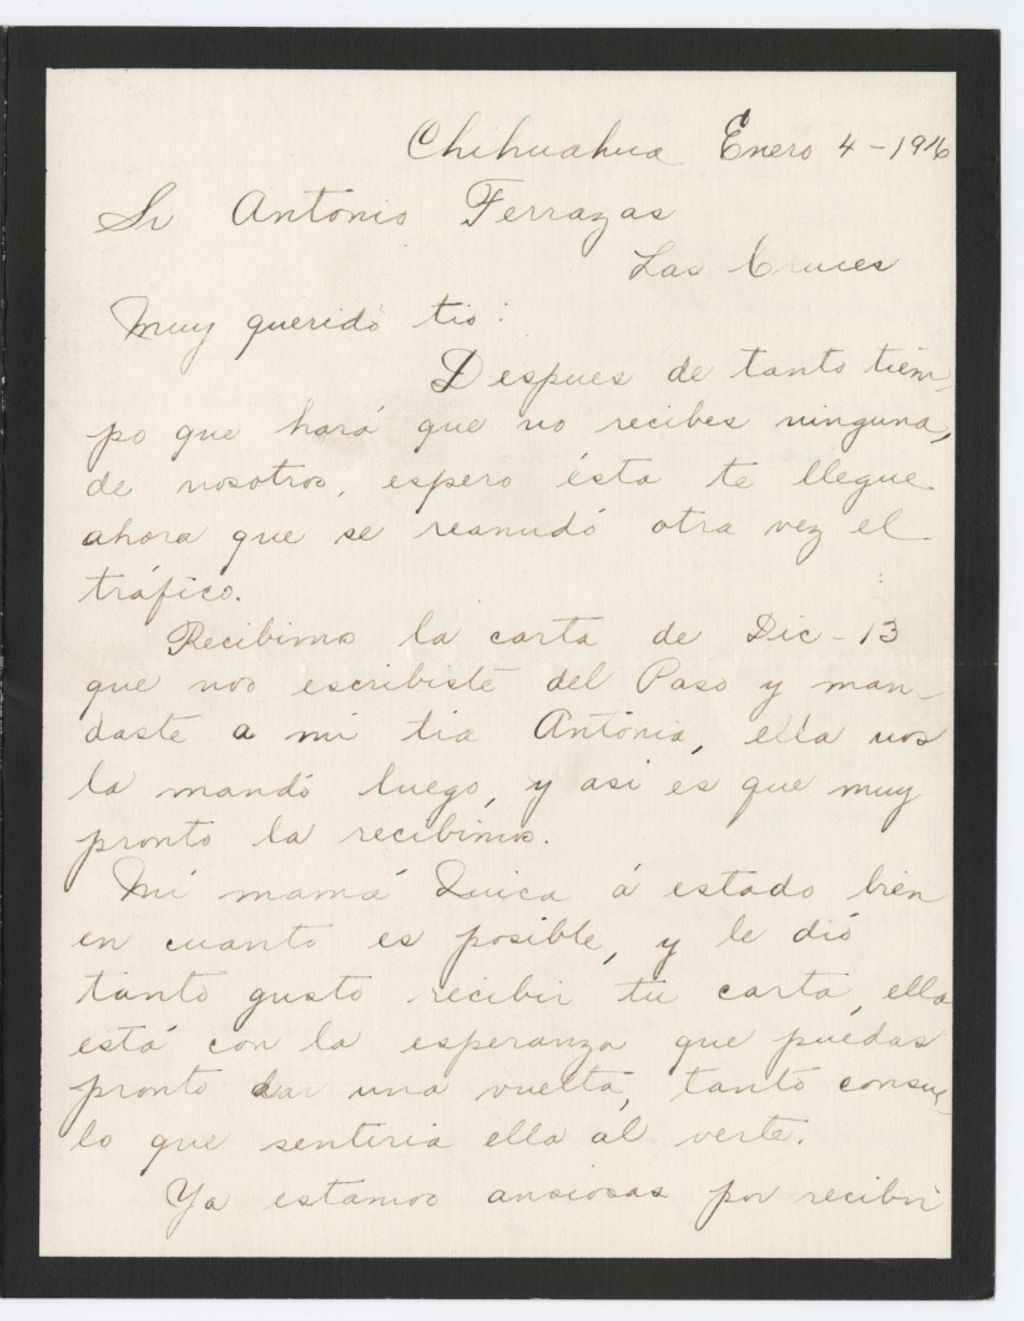 Chihuahua Enero 4-1916
Sr Antonio Terrazas
Las Cruces
Muy querido tio:
Despues de tanto tiem-
po que hará que no recibes ninguna,
de nosotros, espero ésta te llegue
ahora que se reanudó otra vez el
tráfico.
Recibimos la carta de Dic-13
que nos escribiste del Paso y man-
daste a mi tia Antonia, ella nos
la mandó luego, y asi es que muy
pronto la recibimos.
Mi mamá Quica á estado bien
en cuanto es posible, y le dió
tanto gusto recibir tu carta, ella
está con la esperanza que puédas
pronto dar una vuelta, tanto consue-
lo que sentiria ella al verte.
Ya estamos ansiosas por recibir